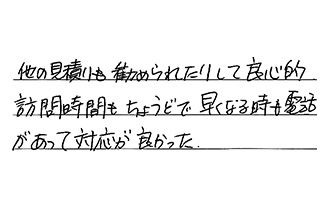 他の見積りも勧められたりして良心的
訪問時間もちょうどで早くなる時も電話
があって対応が良かった.